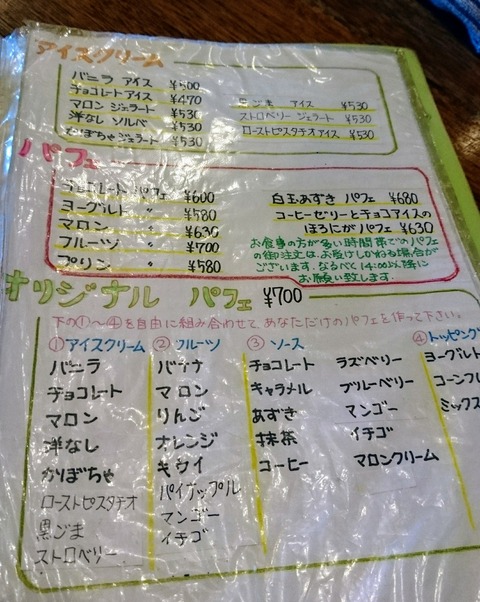 アイスクリーム
バニラ アイス ¥500
チョコレートアイス ¥470
マロン ジェラート ¥530
洋なし ソルベ ¥530
かぼちゃ ジェラート ¥530
黒ごま アイス ¥530
ストロベリー ジェラート ¥530
ローストピスタチオ アイス ¥530
パフェ
チョコレート パフェ ¥600
ヨーグルト 〃 ¥580
マロン 〃 ¥630
フルーツ 〃 ¥700
プリン 〃 ¥580
白玉あずき パフェ ¥680
コーヒーゼリーとチョコアイスの
ほろにがパフェ ¥630
お食事の方が多い時間帯でのパフェ
の御注文は、お受けしかねる場合が
ございます。なるべく14:00以降に
お願い致します。
オリジナル パフェ ¥700
下の①〜④を自由に組み合わせて、あなただけのパフェを作って下さい。
①アイスクリーム
バニラ
チョコレート
マロン
洋なし
かぼちゃ
ローストピスタチオ
黒ごま
ストロベリー
②フルーツ
バナナ
マロン
りんご
オレンジ
キウイ
パイナップル
マンゴー
イチゴ
③ソース
チョコレート
キャラメル
あずき
抹茶
コーヒー
ラズベリー
ブルーベリー
マンゴー
イチゴ
マロンクリーム
④トッピング
ヨーグルト
コーンフ
ミックス